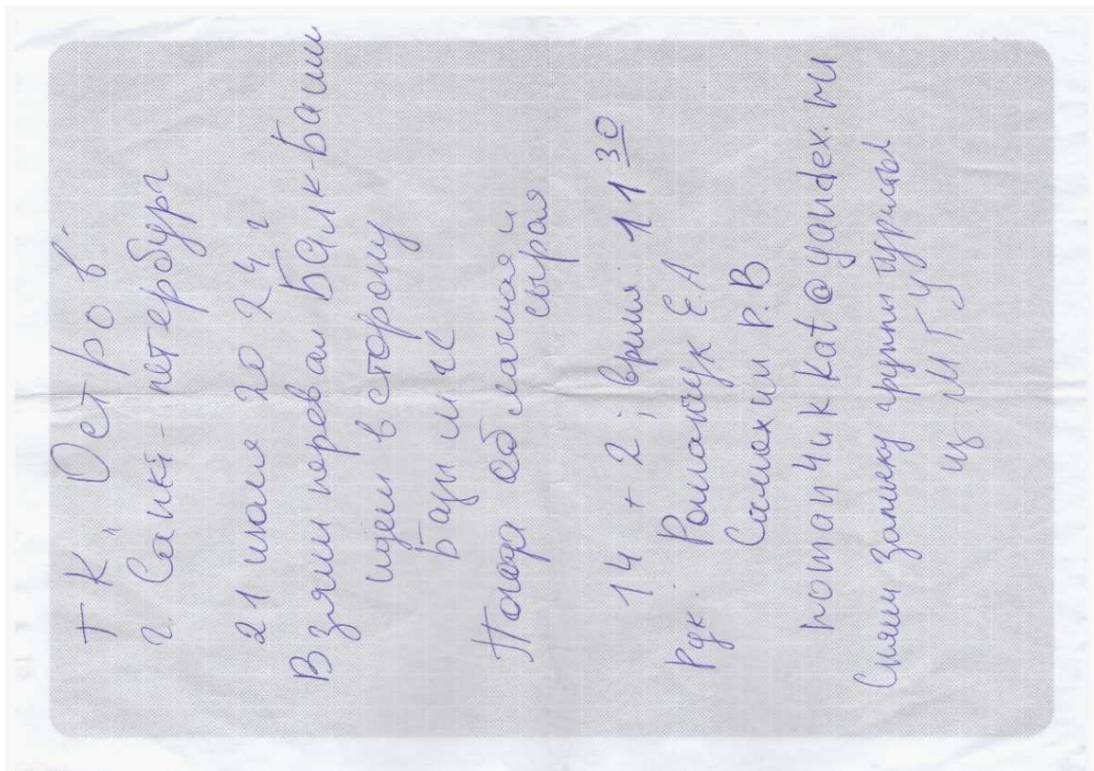 ТК "Остров"
г. Санкт-Петербург
21 июля 2024 г
Взяли перевал Балк-Баши
идем в сторону
Базы МЧС
Погода облачная и
сырая
14 + 2; время 11 30
Рук. Романчук Е.А
Самохин Р.В
roman4ukkat@yandex.ru
Сняли записку группы туристов
из МГУ